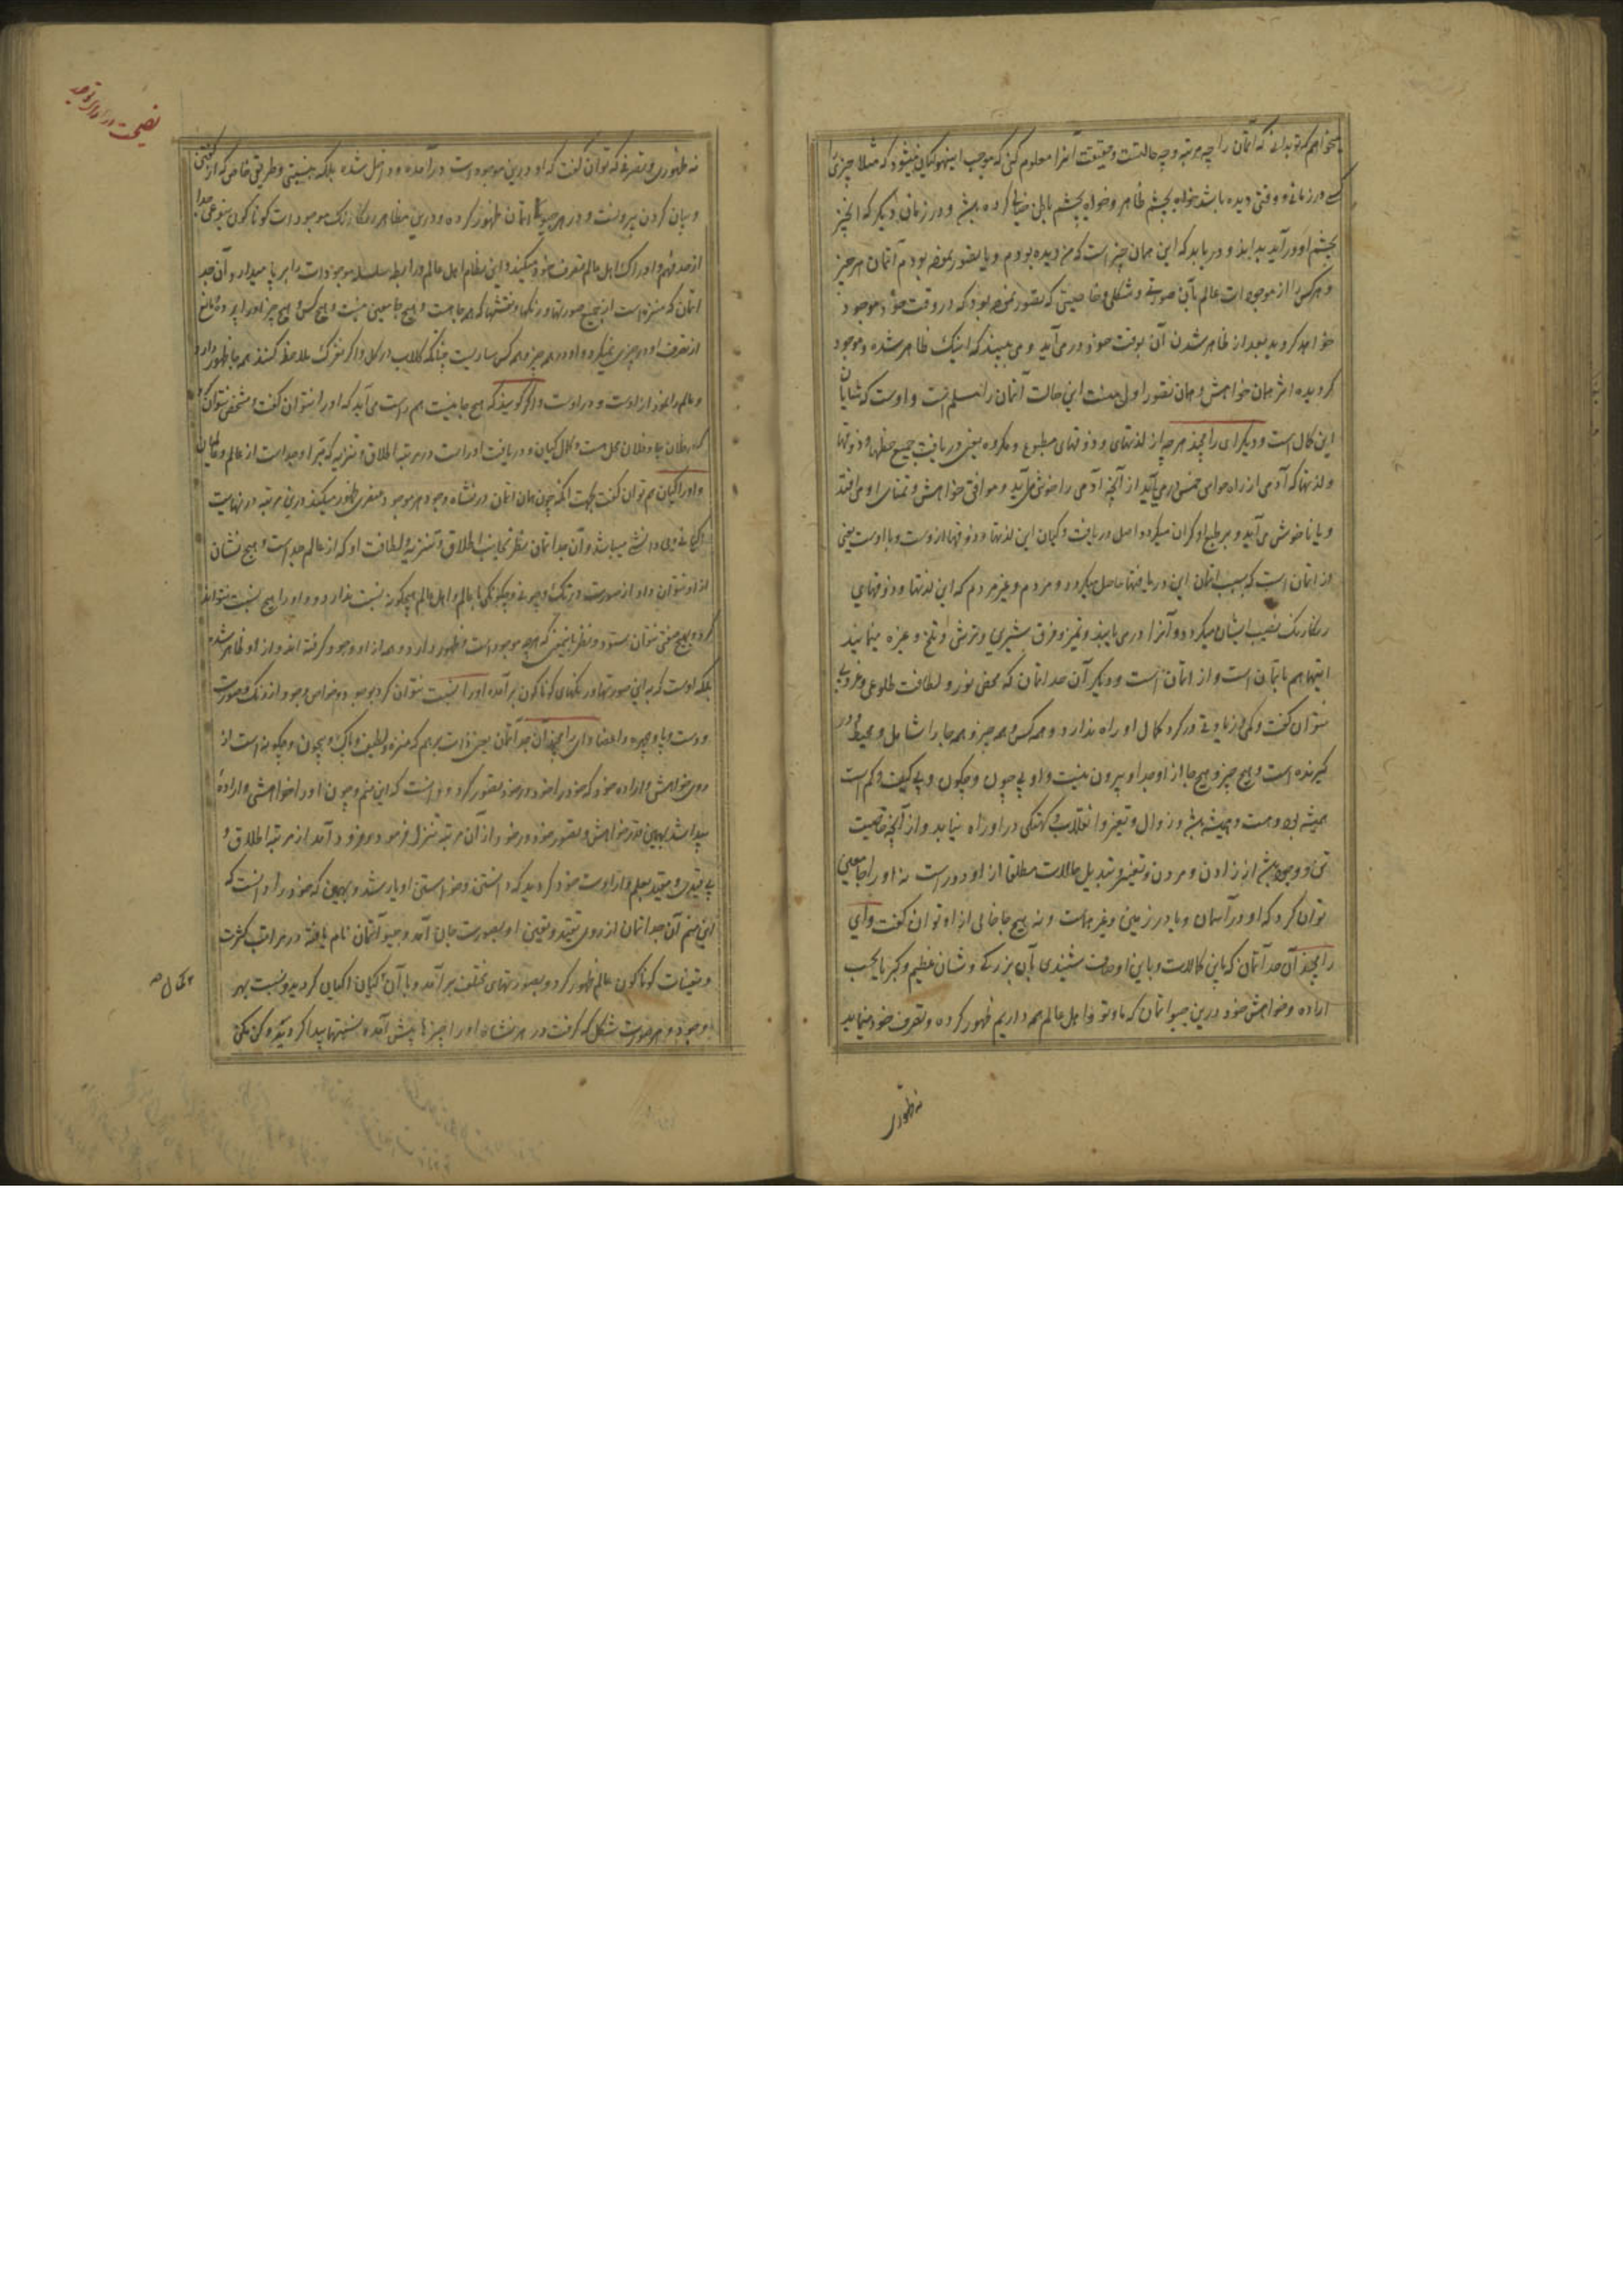 میخواهم که تو بدانی که آتمان را چه مرتبه و چه حالتست و حقیقت آنرا معلوم کنی که موجب اینهمه گیان میشود که مثلا چیزی
کسی در زمانی و وقتی دیده باشد خواه بچشم ظاهر و خواه بچشم باطن کرده باشد و در زمان دیگر که آنچیز
بچشم او درآید بداند و دریابد که این همان چیز است که من دیده بودم و یا تصور نموده بودم آتمان هر چیز
و هر کس را از موجودات عالم بآن صورتی و شکلی و خاصیتی که تصور نموده بود که در وقت خود موجود
خواهد گردید بعد از ظاهر شدن آن بوقت خود در می آید و می بیند که اینک ظاهر شده و موجود
گردیده اثر همان خواهش و همان تصور اول منست این حالت آتمان را مسلم است و اوست که شایان
این کمال است و دیگر ای رامچند هر چه از لذتهای و ذوقهای مطبوع و مکروه یعنی دریافت جمیع حظها و ذوقها
و لذتها که آدمی از راه حواس خمس در می آید از آنچه آدمی را خوش می آید و موافق خواهش و تمنای او می افتد
و یا ناخوش می آید و بر طبع او گران میگردد اصل دریافت و گیان این لذتها و ذوقها ازوست و با اوست یعنی
از آتمان است که بسبب آتمان این دریافتها حاصل میگردد و مردم و غیر مردم که این لذتها و ذوقهای
رنگارنگ نصیب ایشان میگردد و آنرا در می یابند و تمیز و فرق شیرین و ترش و تلخ و غیره مینمایند
اینها هم بآتمان است و از آتمان است و دیگر آن مدآتمان که محض نور و لطافت طلوعی و غروبی
نتوان گفت و کمی و زیادتی در گرد کمال او راه ندارد و همه کس و همه چیز و همه جا را شامل و محیط و در
گیرنده است و هیچ چیز و هیچ جا از او جدا و بیرون نیست و او بی چون و چگون و بی کیف و کم است
همیشه بود و هست و همیشه باشد و زوال و تغیر و انقلاب و کهنگی در او راه نیابد و از آنچه خاصیت
تن و وجود باشد از زادن و مردن و تغیر و تبدیل حالات مطلقا از او دور است نه او را جا معین
توان کرد که او در آسمان و یا در زمین و غیر هماست و نه هیچ جا خالی از او توان گفت و ای
رامچند آن مدآتمان که باین کمالات و باین اوصاف شنیدی بآن بزرگی و شان عظیم و کبریا بحسب
اراده و خواهش خود درین جیوآتمان که ما و تو و اهل عالم همه داریم ظهور کرده و تصرف خود مینماید
نه ظهوری
نه ظهوری و تصرفی که توان گفت که او درین موجود است و درآمده و داخل شده بلکه بحیثیتی و طریقی خاص که از گفتن
و بیان کردن بیرونست و در هر جیو آتمان ظهور کرده و درین مظاهر رنگارنگ موجودات گوناگون بنوعی جدا
از حد فهم و ادراک اهل عالم تصرف خود میکند و این نظام اهل عالم و رابطه سلسله موجودات را بر پا میدارد و آن مد
آتمان که منزه است از جمیع صورتها و رنگها و نقشها که همه جا هست و هیچ جا معین نیست و هیچ کس و هیچ چیز او را پرده و مانع
از تصرف او در چیزی نمیگردد و او در همه چیز و همه کس ساریست چنانکه گلاب در گل و اگر بفرق ملاحظه کنند همه جا ظهور دارد
و عالم را ظهور از اوست و در اوست و اگر گویند که هیچ جا نیست هم راست می آید که او را نتوان گفت و مشخص نتوان کرد
که بفلان جا و فلان محل هست و کمال گیان و دریافت او راست در مرتبه اطلاق و تنزیه که مبرا و جداست از عالم و عالمیان
و او را گیان هم توان گفت بجهت آنکه چون همان آتمان در نشاه وجود هر موجود عنصری ظهور میکند درین مرتبه در نهایت
و آن مدآتمان بنظر بجانب اطلاق و تنزیه و لطافت او که از عالم جداست و هیچ نشان
از او نتوان داد از صورت و رنگ و چونی و چگونگی با عالم و اهل عالم هیچگونه نسبت ندارد و او را هیچ نسبت نتواند
کرد و بهیچ صفتی نتوان ستود و بنظر باینمعنی که هر چه موجود است ظهور دارد و همه از او وجود گرفته اند و از او ظاهر شده
بلکه اوست که باین صورتها و رنگهای گوناگون برآمده او را نسبت توان کرد بوجود و خواص وجود از رنگ و صورت
و دست و پا و چهره و اعضا و ای رامچند آن مدآتمان یعنی ذات برهم که منزه و لطیف و پاک و بیچون و چگونه است از
روی خواهش و اراده خود که خود را خود در خود تصور کرد و دانست که این منم و چون او را خواهشی و اراده
پیدا شد بهمین قدر خواهش و تصور خود در خود از آن مرتبه تنزل فرمود و فرود آمد از مرتبه اطلاق و
بی قیدی و مقید بعلم و اراوت خود گردید که دانستن و خواستن او یار شد و بهمین که خود را دانست که
این منم آن مدآتمان از روی تقید و تعین او بصورت جان آمد و جیوآتمان نام یافته در مراتب کثرت
و تعینات گوناگون عالم ظهور کرد و بصورتهای مختلف برآمد و با آن گیان اگیان گردید و نسبت بهر
وجود و هر صورت شکل که گرفت در هر نشاه او را چیزها پیش آمد و نسبتها پیدا کرد یکی و یکی
نصیحت